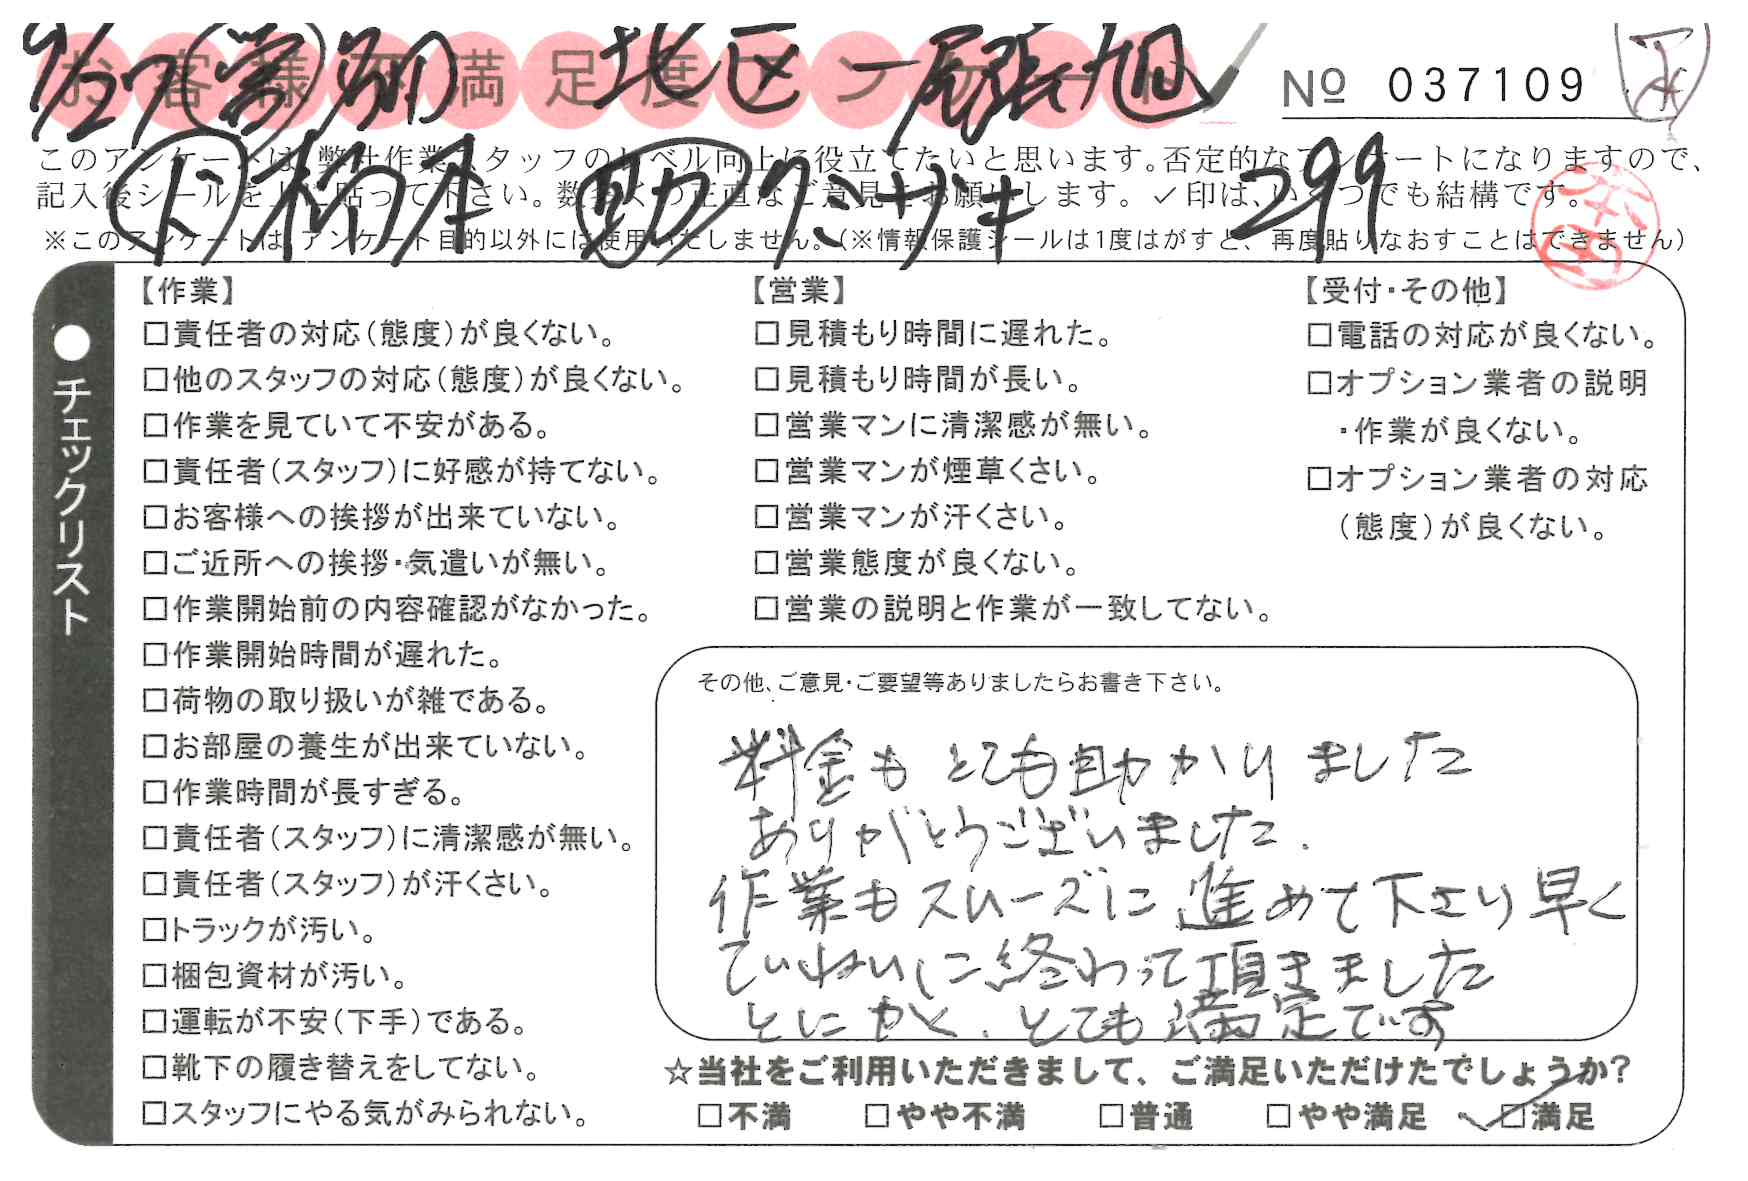 お客様不満足度アンケート
9/27 営 北区ー尾張旭
№ 037109
このアンケートは、弊社作業スタッフのレベル向上に役立てたいと思います。否定的なアンケートになりますので、
記入後シールを上に貼って下さい。数多くの正直なご意見をお願いします。✓印は、いくつでも結構です。
ド 柄本 助 クミザキ 299
※このアンケートは、アンケート目的以外には使用いたしません。（※情報保護シールは1度はがすと、再度貼りなおすことはできません）
●チェックリスト
【作業】
□責任者の対応（態度）が良くない。
□他のスタッフの対応（態度）が良くない。
□作業を見ていて不安がある。
□責任者（スタッフ）に好感が持てない。
□お客様への挨拶が出来ていない。
□ご近所への挨拶・気遣いが無い。
□作業開始前の内容確認がなかった。
□作業開始時間が遅れた。
□荷物の取り扱いが雑である。
□お部屋の養生が出来ていない。
□作業時間が長すぎる。
□責任者（スタッフ）に清潔感が無い。
□責任者（スタッフ）が汗くさい。
□トラックが汚い。
□梱包資材が汚い。
□運転が不安（下手）である。
□靴下の履き替えをしてない。
□スタッフにやる気がみられない。
【営業】
□見積もり時間に遅れた。
□見積もり時間が長い。
□営業マンに清潔感が無い。
□営業マンが煙草くさい。
□営業マンが汗くさい。
□営業態度が良くない。
□営業の説明と作業が一致してない。
【受付・その他】
□電話の対応が良くない。
□オプション業者の説明
・作業が良くない。
□オプション業者の対応
（態度）が良くない。
その他、ご意見・ご要望等ありましたらお書き下さい。
料金もとても助かりました
ありがとうございました.
作業もスムーズに進めて下さり早く
ていねいに終わって頂きました
とにかく、とても満足です
☆当社をご利用いただきまして、ご満足いただけたでしょうか?
□不満 □やや不満 □普通 □やや満足 ✓□満足